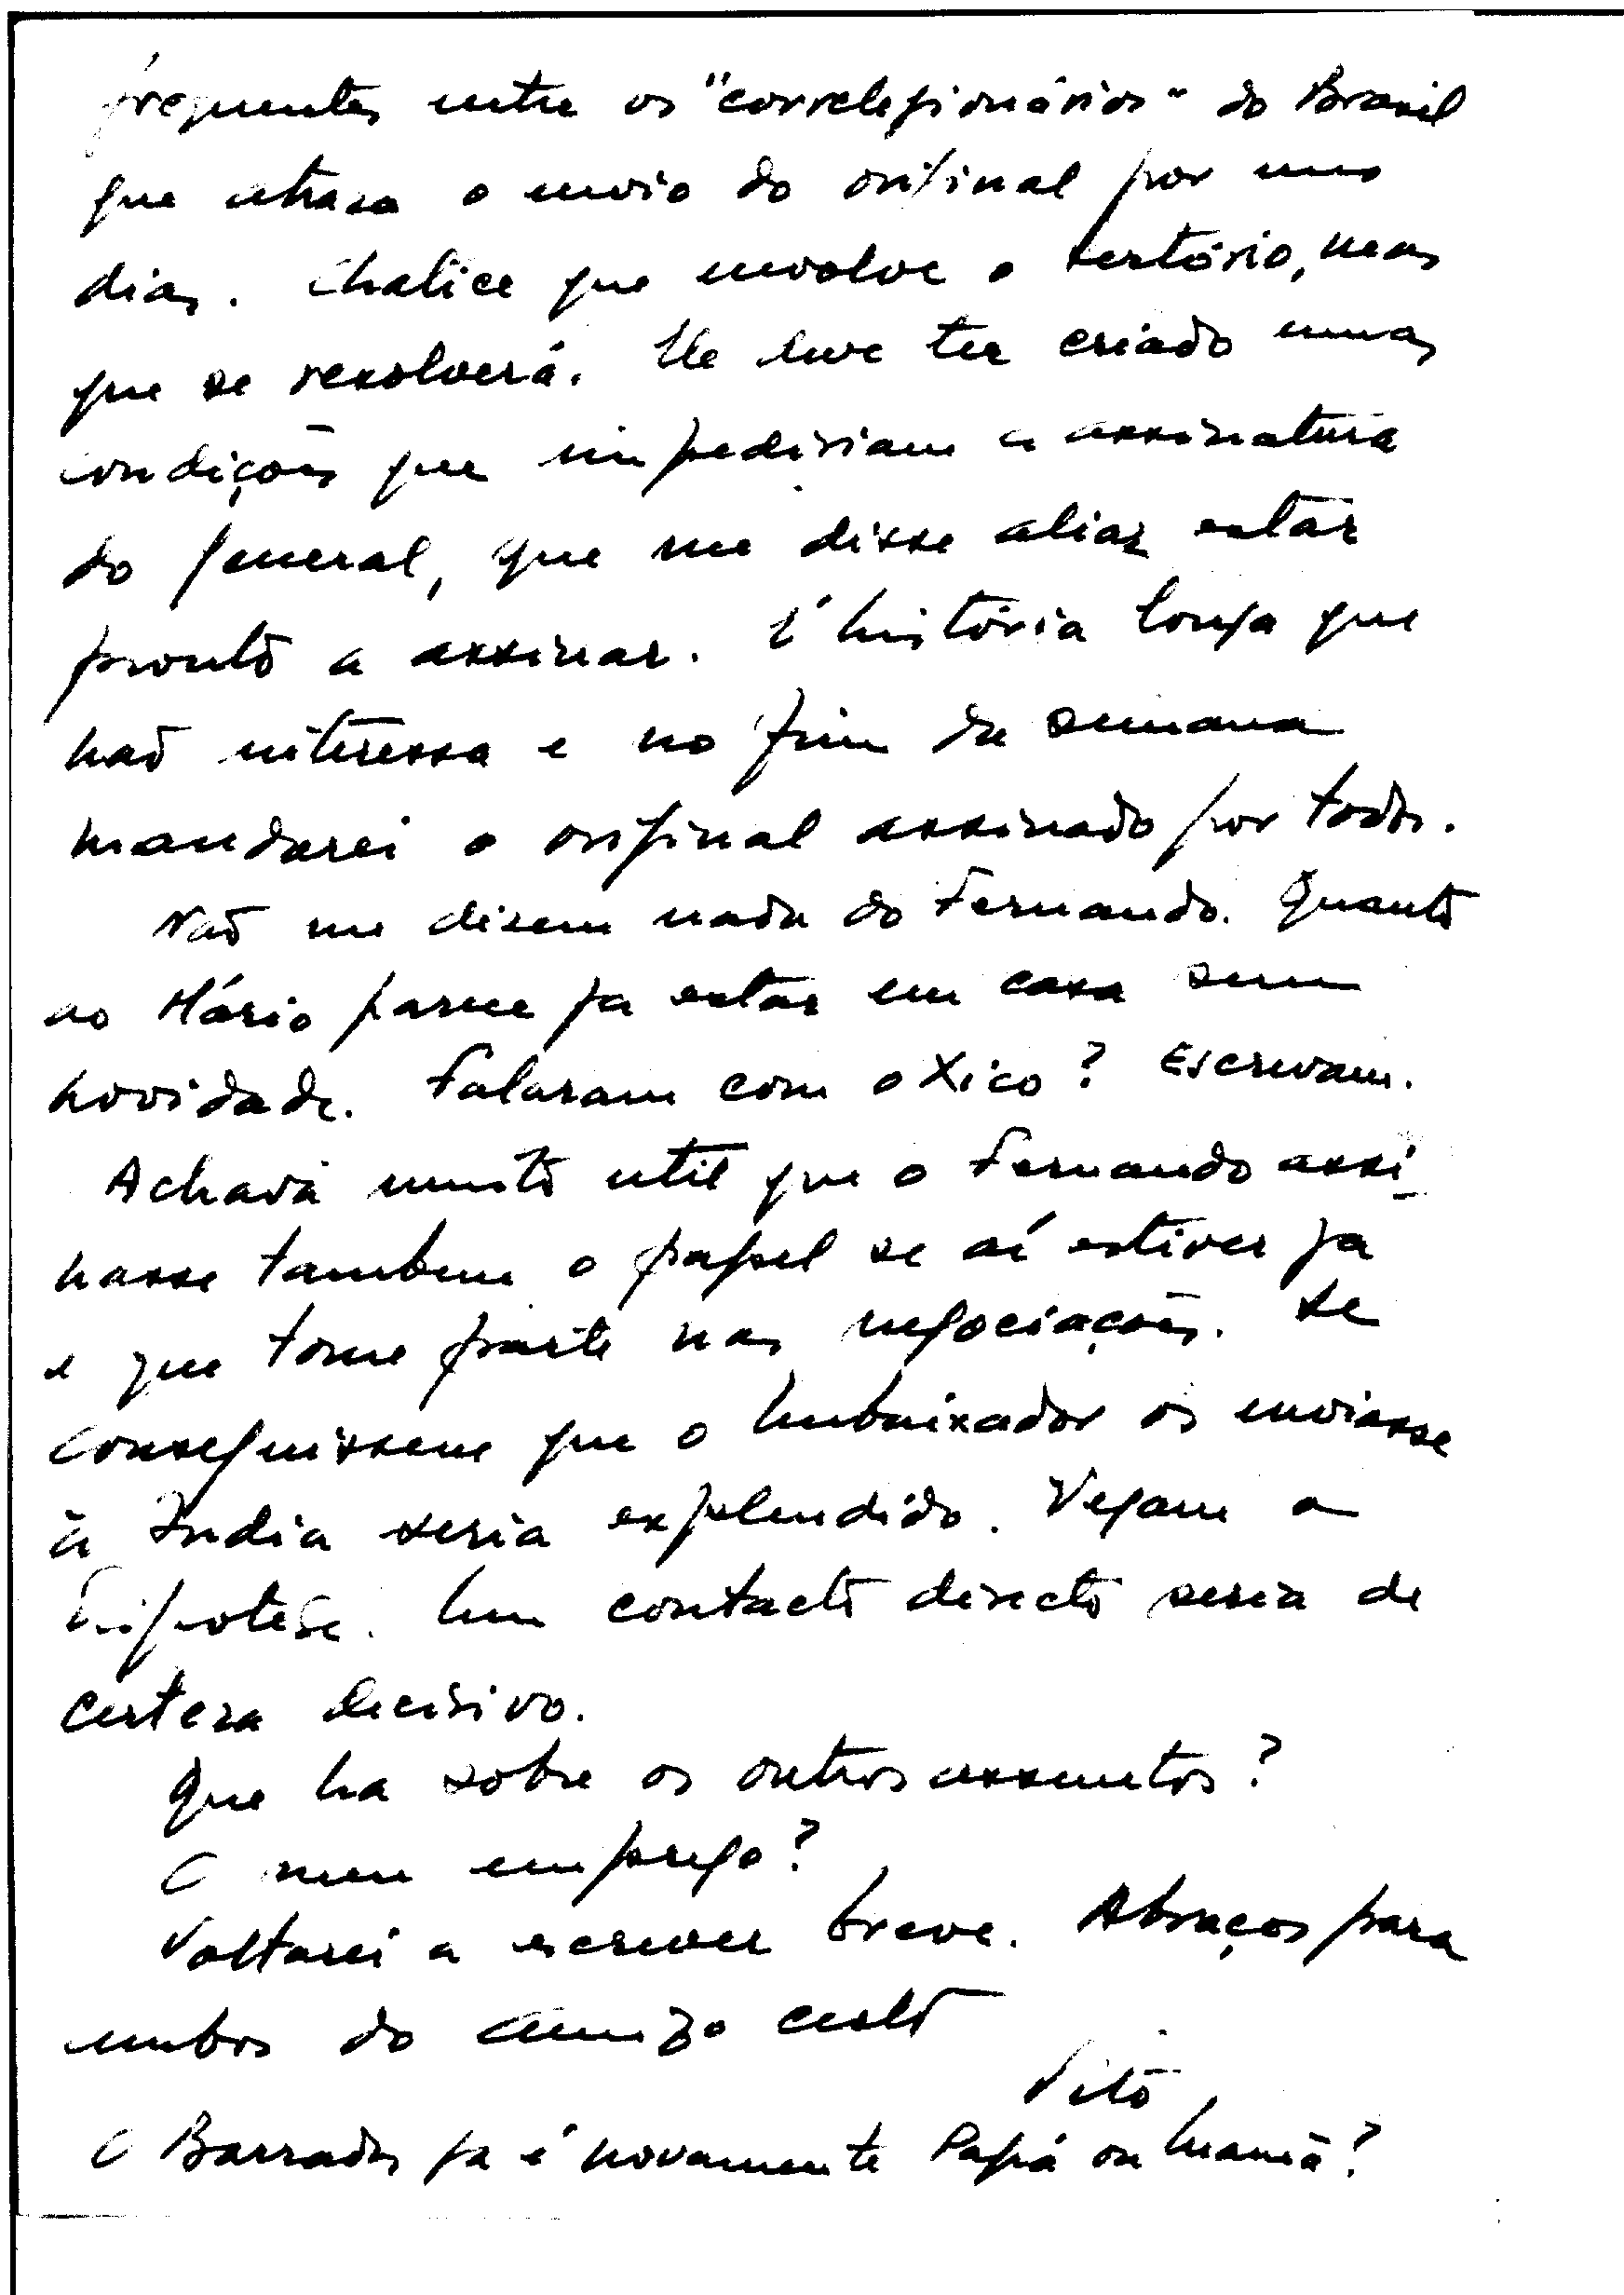 frequentes entre os "correlegionários" do Brasil
que atrasa o envio do original por uns
dias. Chatice que envolve o Sertório, mas
que se resolverá. Ele deve ter criado umas
condições que impediriam a assinatura
do general, que me disse aliaz estar
pronto a assinar. É história longa que
não interessa e no fim da semana
mandarei o original assinado por todos.
Não me dizem nada do Fernando. Quanto
ao Mário parece ja estar em casa sem
novidade. Falaram com o Xico? Escrevam.
Achava muito util que o Fernando assi-
nasse tambem o papel se aí estiver ja
e que tome parte nas negociações. Se
conseguissem que o Embaixador os enviasse
à India seria explendido. Vejam a
hipotese. Um contacto directo seria de
certeza decisivo.
Que ha sobre os outros assuntos?
O meu emprego?
Voltarei a escrever breve. Abraços para
ambos do amigo certo
Vitó
O Barradas ja é novamente Papá ou Mamã?